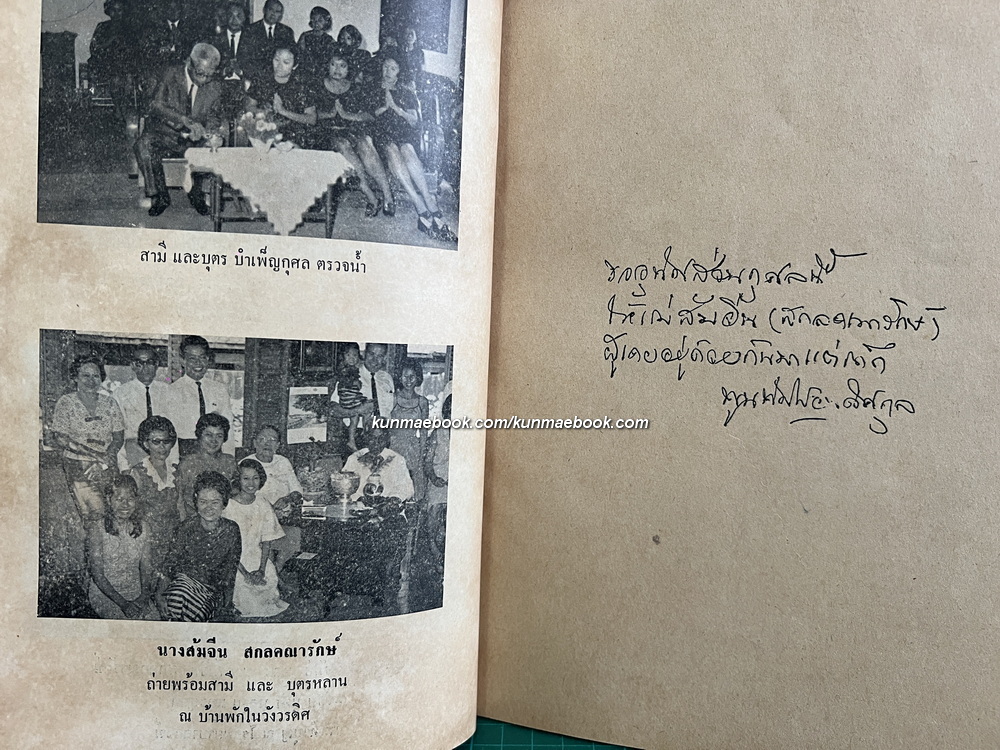 สามี และบุตร บำเพ็ญกุศล ตรวจน้ำ
นางส้มจีน สกลคณารักษ์
ถ่ายพร้อมสามี และ บุตรหลาน
ณ บ้านพักในวังวรดิศ
ขออุทิศส่วนกุศลนี้
ให้แม่ส้มจีน (สกลคณารักษ์)
ผู้เคยอยู่ด้วยกันมาแต่
ดิศกุล
kunmaebook.com/kunmaebook.com